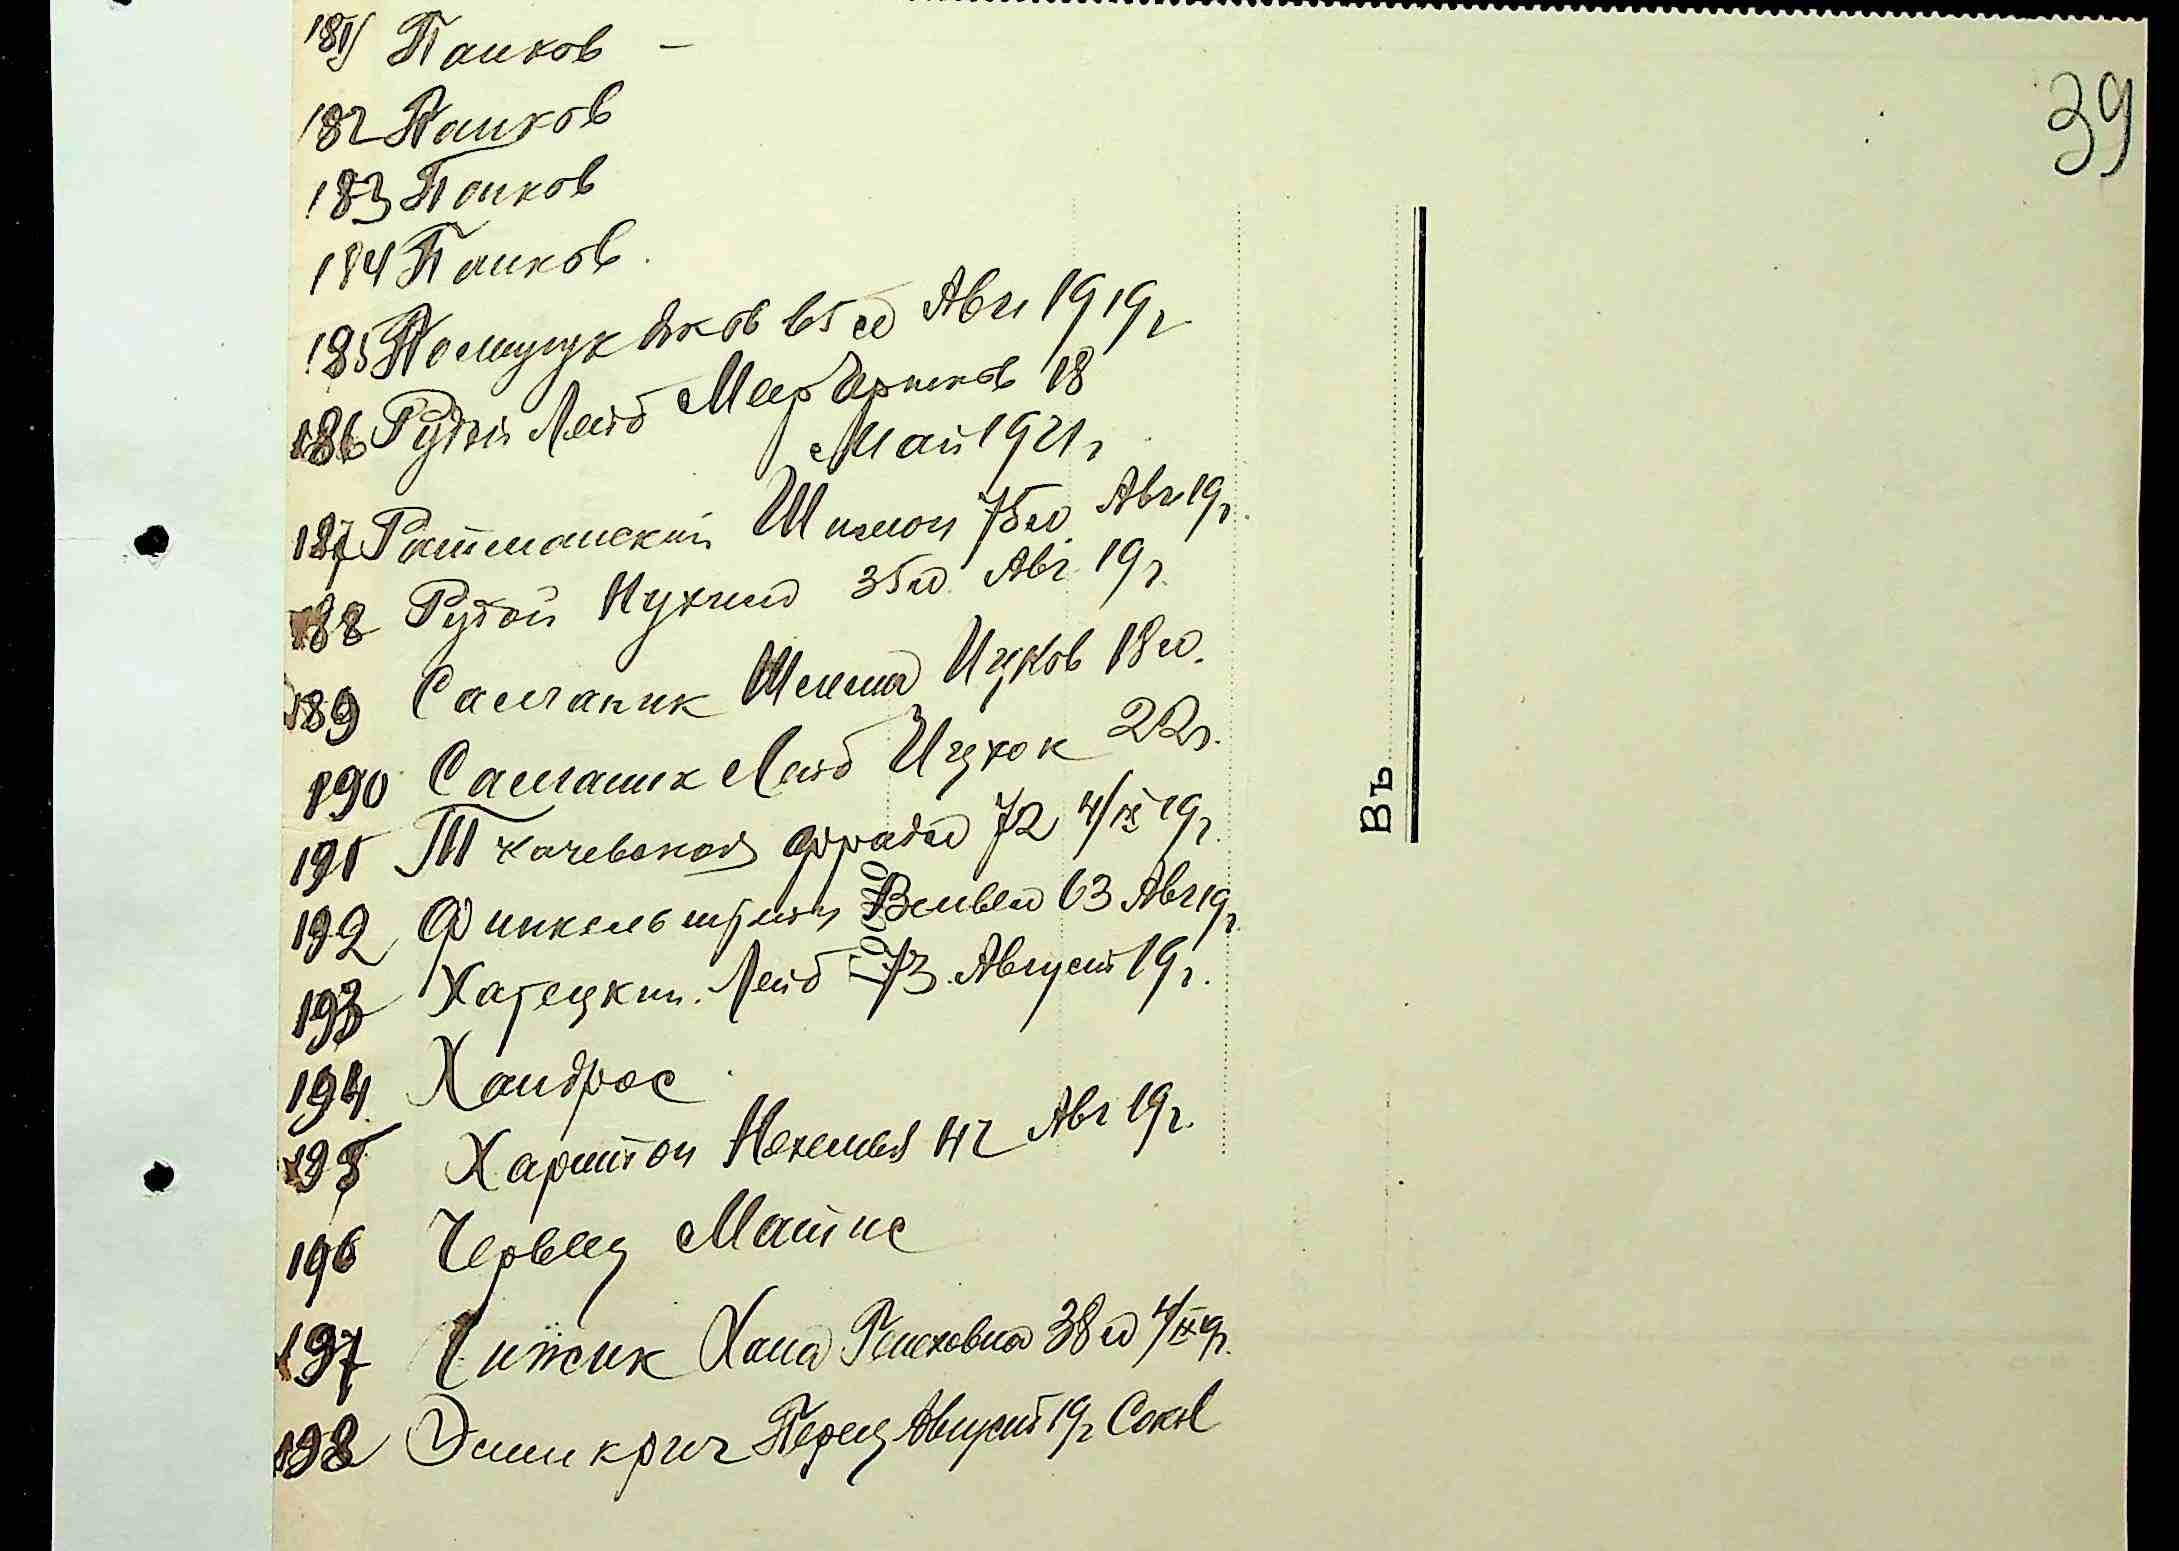 39
181 Панков -
182 Панков
183 Панков
184 Панков.
185 Яков 65 л Авг 1919 г
186 Рудой Лейб Меер Аршков 18
Май 1921 г
187 Ратманский Шимон 75 л. Авг 19 г.
188 Рудой Нухим 35 л. Авг. 19 г.
189 Самганик Шлема Ицков 18 л.
190 Самганик Лейб Ицкок 22 г.
191 Ткачевская Фрадя 72 4/IX 19 г.
192 Финкельштейн Вельвел 63 Авг 19 г.
193 Хатецкий. Лейб 73. Август 19 г.
194 Хандрос
195 Харитон Нехемья 42 Авг 19 г.
196 Червец Матис
197 Чижик Хана 38 л 4/IX 19 г.
198 Перец Август 19 г
Въ